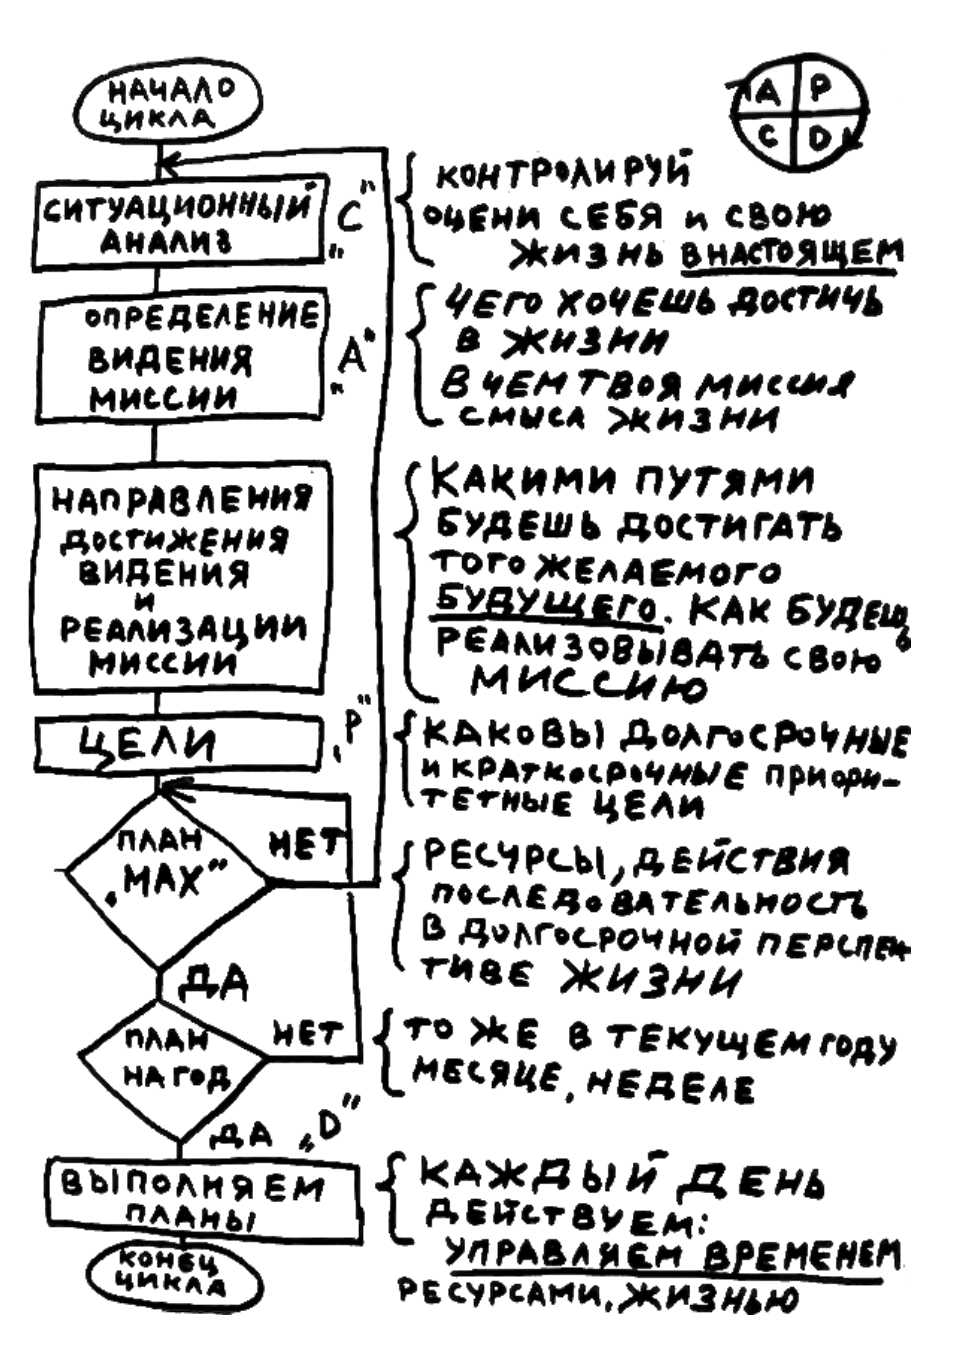 НАЧАЛО
ЦИКЛА
A P
C D
СИТУАЦИОННЫЙ
АНАЛИЗ
„C"
КОНТРОЛИРУЙ
ОЦЕНИ СЕБЯ и СВОЮ
ЖИЗНЬ В НАСТОЯЩЕМ
ОПРЕДЕЛЕНИЕ
ВИДЕНИЯ
МИССИИ
„A"
ЧЕГО ХОЧЕШЬ ДОСТИЧЬ
В ЖИЗНИ
В ЧЕМ ТВОЯ МИССИЯ
СМЫСЛ ЖИЗНИ
НАПРАВЛЕНИЯ
ДОСТИЖЕНИЯ
ВИДЕНИЯ
И
РЕАЛИЗАЦИИ
МИССИИ
КАКИМИ ПУТЯМИ
БУДЕШЬ ДОСТИГАТЬ
ТОГО ЖЕЛАЕМОГО
БУДУЩЕГО. КАК БУДЕШЬ
РЕАЛИЗОВЫВАТЬ СВОЮ
МИССИЮ
ЦЕЛИ
„P"
КАКОВЫ ДОЛГОСРОЧНЫЕ
И КРАТКОСРОЧНЫЕ ПРИОРИ-
ТЕТНЫЕ ЦЕЛИ
ПЛАН
„MAX"
НЕТ
ДА
РЕСУРСЫ, ДЕЙСТВИЯ
ПОСЛЕДОВАТЕЛЬНОСТЬ
В ДОЛГОСРОЧНОЙ ПЕРСПЕК
ТИВЕ ЖИЗНИ
ПЛАН
НА ГОД
НЕТ
ДА „D"
ТО ЖЕ В ТЕКУЩЕМ ГОДУ
МЕСЯЦЕ, НЕДЕЛЕ
ВЫПОЛНЯЕМ
ПЛАНЫ
КАЖДЫЙ ДЕНЬ
ДЕЙСТВУЕМ:
УПРАВЛЯЕМ ВРЕМЕНЕМ
РЕСУРСАМИ, ЖИЗНЬЮ
КОНЕЦ
ЦИКЛА